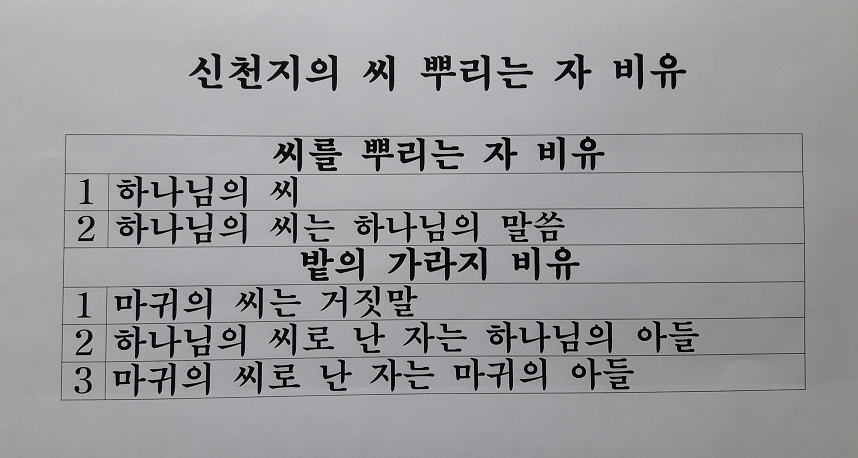 신천지의 씨 뿌리는 자 비유
씨를 뿌리는 자 비유
1 하나님의 씨
2 하나님의 씨는 하나님의 말씀
밭의 가라지 비유
1 마귀의 씨는 거짓말
2 하나님의 씨로 난 자는 하나님의 아들
3 마귀의 씨로 난 자는 마귀의 아들